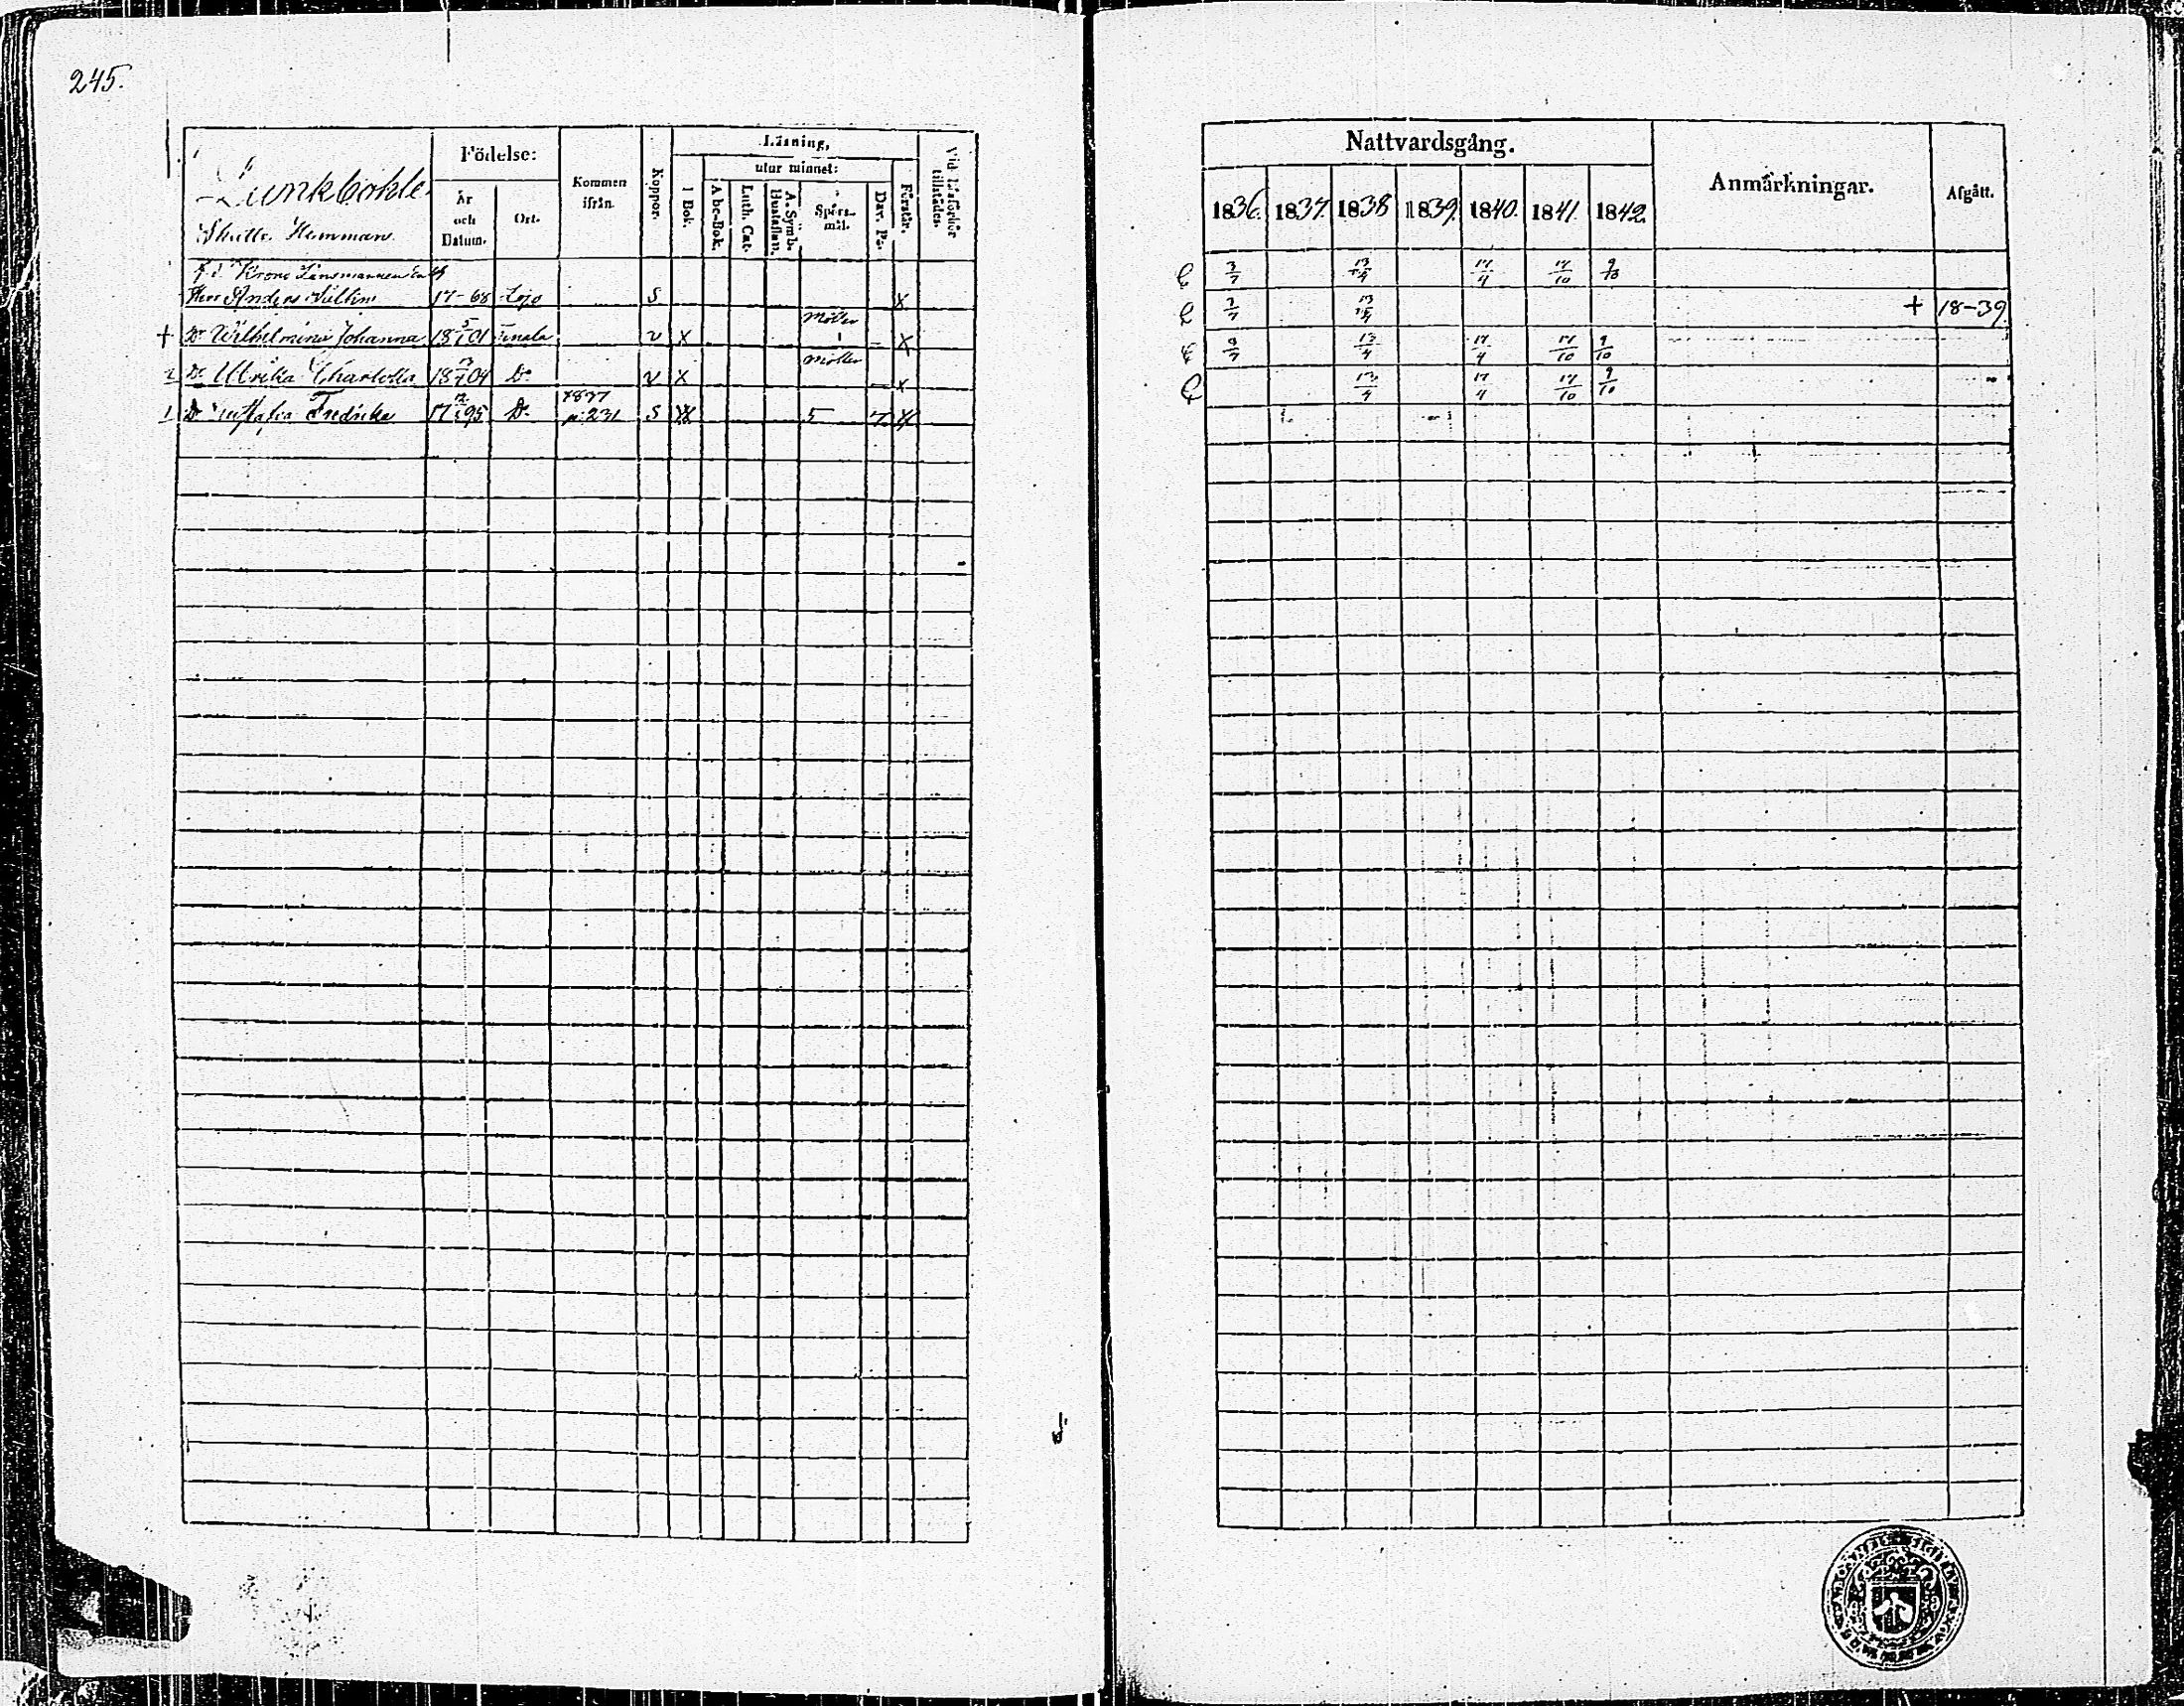 245.
Lunkböhle.
Skatte Hemman.
Födelse:
År och Datum.
Ort.
Kommen ifrån.
Koppor.
Läsning,
I Bok.
utur minnet:
Abc-Bok.
Luth. Cat.
A. Symb. Hustaflan.
Spörs-mål.
Dav. Ps.
Förstår.
Vid Läsförhör tillstädes.
f.d. Krono Länsmannen
Herr Anders 17-68 Lojo S X
+ Dr Wilhelmina Johanna 18 01 Tenala v X Möller X
2 Dr Ulrika Charlotta 18 04 Do v X Möller X
1 Dr Fredrika 17 95 Do 1837 p. 231 S X 5 7 X
Nattvardsgång.
1836. 1837. 1838 1839. 1840. 1841. 1842.
Anmärkningar.
Afgått.
3/7 13/4 17/4 17/10 9/10
3/7 13/4 + 18-39
13/4 17/4 17/10 9/10
13/4 17/4 17/10 9/10